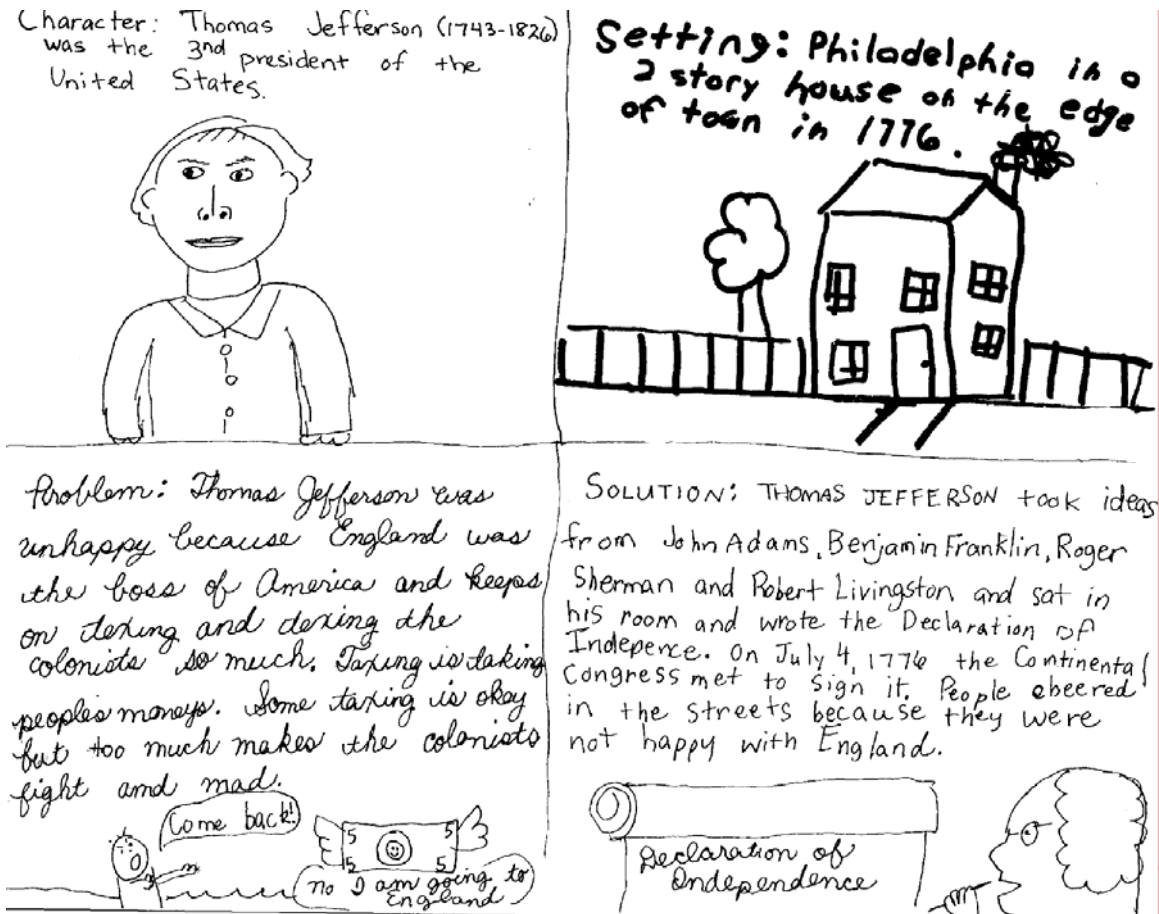 Character: Thomas Jefferson (1743-1826)
was the 3nd president of the
United States.
Setting: Philadelphia in a
2 story house on the edge
of town in 1776.
Problem: Thomas Jefferson was
unhappy because England was
the boss of America and keeps
on texing and texing the
colonists so much. Taxing is taking
peoples moneys. Some taxing is okay
but too much makes the colonists
fight amd mad.
Come back!
5 5
5 5
no I am going to
England
SOLUTION: THOMAS JEFFERSON took ideas
from John Adams, Benjamin Franklin, Roger
Sherman and Robert Livingston and sat in
his room and wrote the Declaration of
Indepence. On July 4, 1776 the Continental
Congress met to sign it. People cheered
in the streets because they were
not happy with England.
Declaration of
Independence